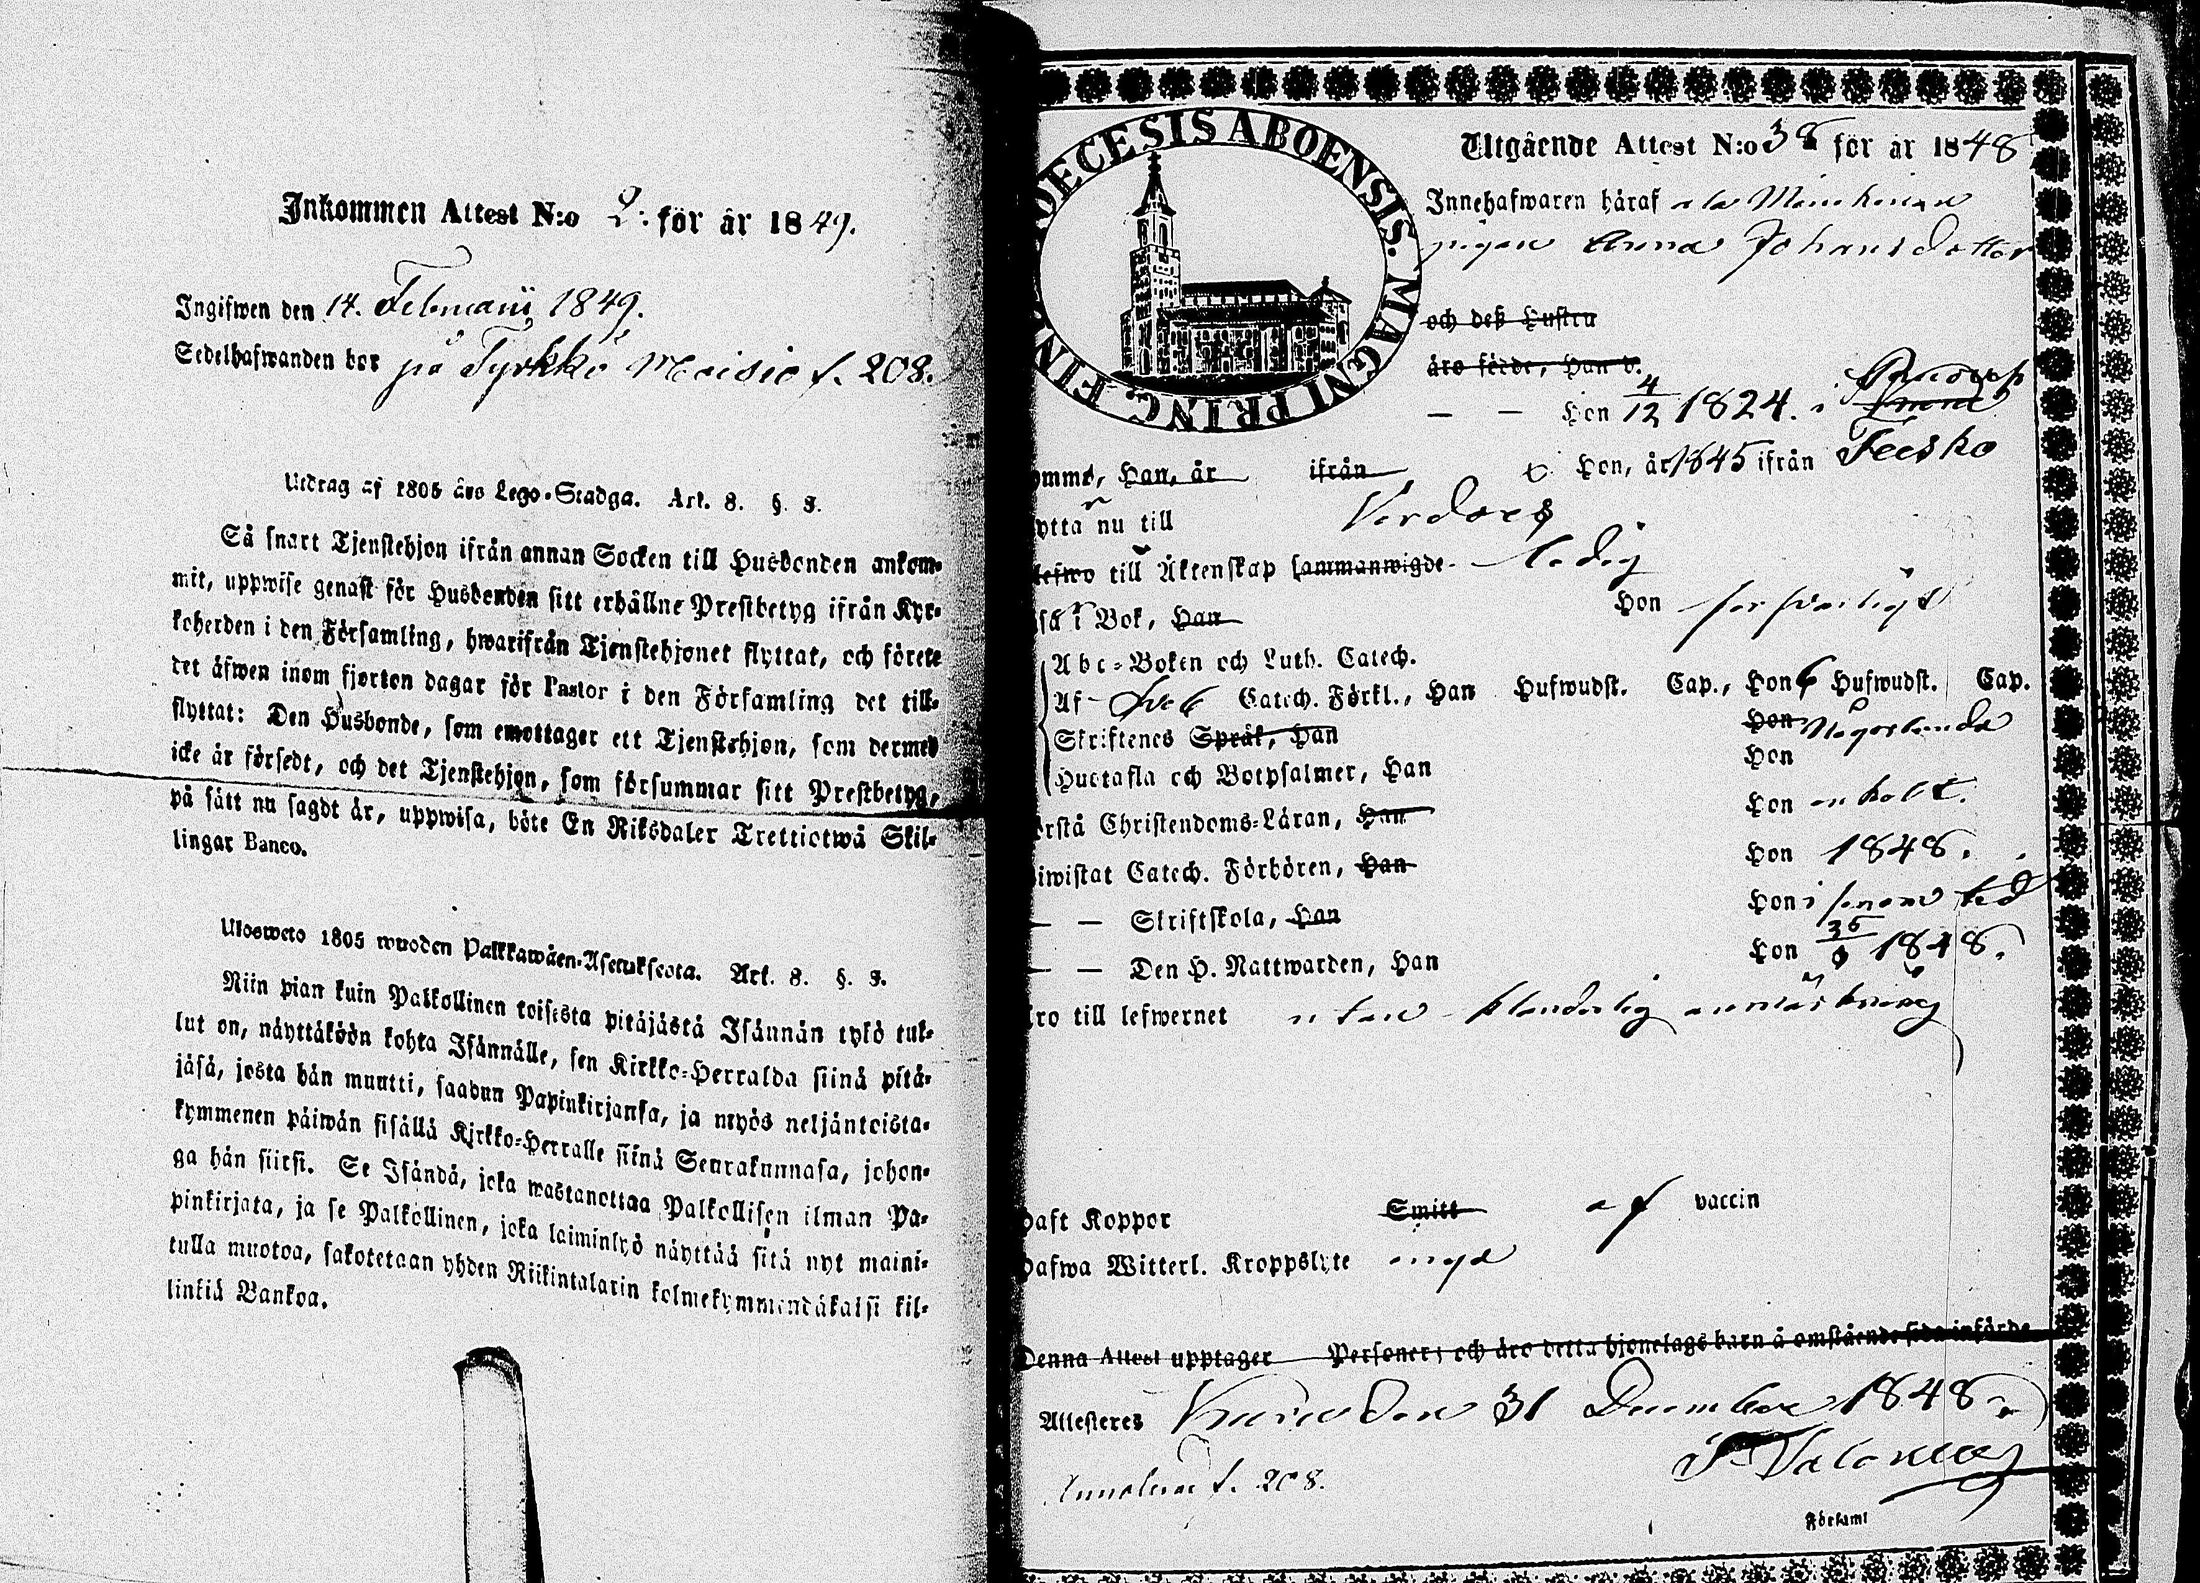 Inkommen Attest N:o 2: för år 1849.
Ingifwen den 14. Februarii 1849.
Sedelhafwanden bor på Tyrkkö Moisio f. 208.
Utdrag af 1805 års Lego-Stadga. Art. 8. §. 3.
Så snart Tjenstehjon ifrån annan Socken till Husbonden ankom-
mit, uppwise genast för Husbonden sitt erhållne Prestbetyg ifrån Kyr-
koherden i den Församling, hwarifrån Tjenstehjonet flyttat, och förete
det äfwen inom fjorton dagar för Pastor i den Församling det till-
flyttat: Den Husbonde, som emottager ett Tjenstehjon, som dermed
icke är försedt, och det Tjenstehjon, som försummar sitt Prestbetyg,
på sätt nu sagdt är, uppwisa, böte En Riksdaler Trettiotwå Skil-
lingar Banco.
Ulosweto 1805 wuoden Palkkawäen-Asetuksesta. Art. 8. §. 3.
Niin pian kuin Palkollinen toisesta pitäjästä Isännän tykö tul-
lut on, näyttäköön kohta Isännälle, sen Kirkko-Herralda siinä pitä-
jäsä, josta hän muutti, saadun Papinkirjansa, ja myös neljäntoista-
kymmenen päiwän sisällä Kirkko-Herralle siinä Seurakunnasa, johon-
ga hän siirsi. Se Isändä, joka wastanottaa Palkollisen ilman Pa-
pinkirjata, ja se Palkollinen, joka laiminlyö näyttää sitä nyt maini-
tulla muotoa, sakotetaan yhden Riikintalarin kolmekymmendäkaksi kil-
linkiä Bankoa.
DECESIS ABOENSIS. MAGNI PRINC. FIN
Utgående Attest N:o 38 för år 1848
Innehafwaren häraf
pigan Anna Johansdotter
och deß Hustru
äro födde, Han d.
— — Hon 4/12 1824. i
ommo, Han, år ifrån Hon, år 1845 ifrån Teisko
ytta nu till Vordoes
lefwo till Äktenskap sammanwigde - ledig
Bok, Han Hon försvarligt
Abc-Boken och Luth. Catech.
Af Catech. Förkl., Han Hufwudst. Cap., Hon 6 Hufwudst. Cap.
Skriftenes Språk, Han Hon någorlunda
Hustafla och Botpsalmer, Han Hon
rstå Christendoms-Läran, Han Hon enkelt.
iwistat Catech. Förhören, Han Hon 1848.
— — Skriftskola, Han Hon i senare tid
— — Den H. Nattwarden, Han Hon 1848.
ro till lefwernet utan klanderlig anmärkning
haft Koppor Smitt af vaccin
hafwa Witterl. Kroppslyte inga
Denna Attest upptager Personer; och äro detta hjonelags barn å omstående sida införde
Attesteres den 31 December 1848.
f. 208.
Församl